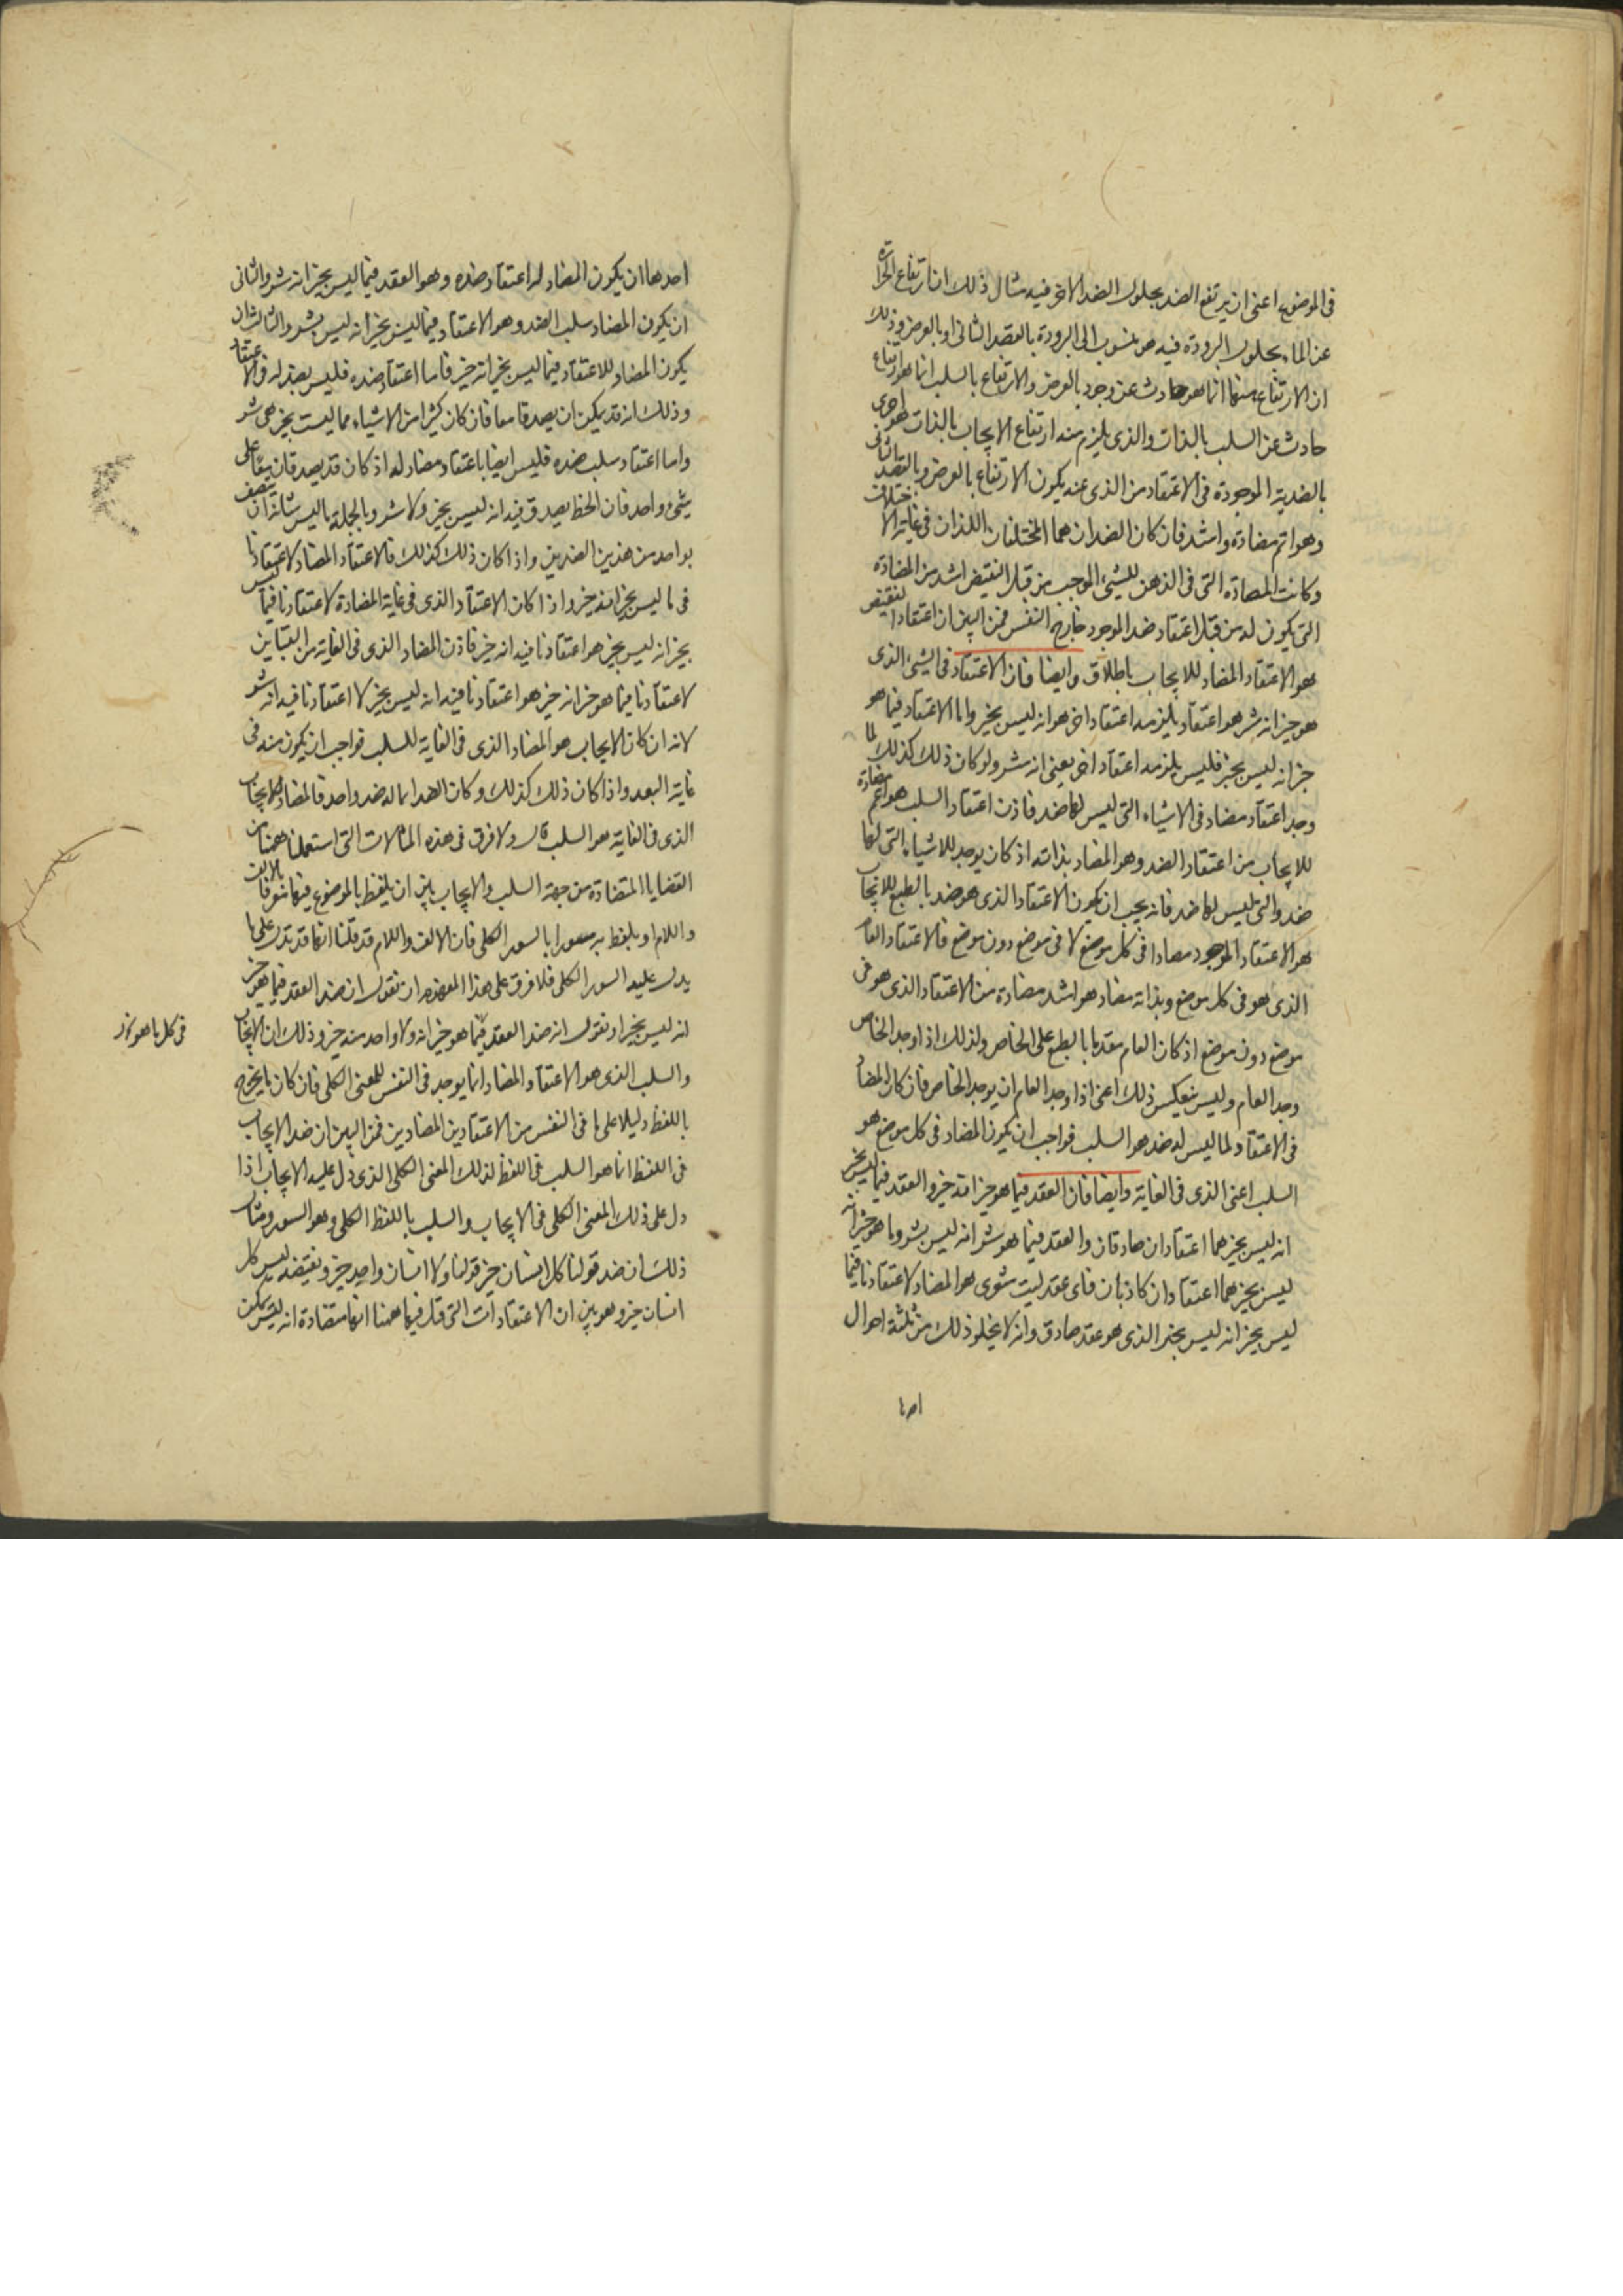 في الموضوع اعني ان يرتفع الضد بحلول الضد الاخر فيه مثال ذلك ان ارتفاع الحرارة
عن الماء بحلول البرودة فيه هو منسوب الى البرودة بالقصد الثاني او بالعرض وذلك
ان الارتفاع منهما انما هو حادث عن وجود بالعرض والارتفاع بالسلب انما هو ارتفاع
حادث عن السلب بالذات والذي يلزم منه ارتفاع الايجاب بالذات هو احرى
بالضدية الموجودة في الاعتقاد من الذي عنه يكون الارتفاع بالعرض وبالقصد الثاني
وهو اتم مضادة واشد فان كان الضدان هما المختلفان اللذان في غاية الاختلاف
وكانت المضادة التي في الذهن للشيء الموجب من قبل النقيض اشد من المضادة
التي يكون له من قبل اعتقاد ضد الموجود خارج النفس فمن البين ان اعتقاد النقيض
هو الاعتقاد المضاد للايجاب باطلاق وايضا فان الاعتقاد في الشيء الذي
هو خير انه شر هو اعتقاد يلزمه اعتقاد اخر هو انه ليس بخير واما الاعتقاد فيما هو
خير انه ليس بخير فليس يلزمه اعتقاد اخر يعني انه شر ولو كان ذلك كذلك لما
وجد اعتقاد مضاد في الاشياء التي ليس لها ضد فاذن اعتقاد السلب هو اعم مضادة
للايجاب من اعتقاد الضد وهو المضاد بذاته اذ كان يوجد للاشياء التي لها
ضد والتي ليس لها ضد فانه يجب ان يكون الاعتقاد الذي هو ضد بالطبع للايجاب
هو الاعتقاد الموجود مضادا في كل موضع لا في موضع دون موضع فالاعتقاد العام
الذي هو في كل موضع وبذاته مضاد هو اشد مضادة من الاعتقاد الذي هو في
موضع دون موضع اذ كان العام متقدما بالطبع على الخاص ولذلك اذا وجد الخاص
وجد العام وليس ينعكس ذلك اعني اذا وجد العام ان يوجد الخاص فان كان المضاد
في الاعتقاد لما ليس له ضد هو السلب فواجب ان يكون المضاد في كل موضع هو
السلب اعني الذي في الغاية وايضا فان العقد فيما هو خير انه خير والعقد فيما ليس بخير
انه ليس بخير هما اعتقادان صادقان والعقد فيما هو شر انه ليس بشر وما هو خير انه
ليس بخير هما اعتقادان كاذبان فاي عقد ليت شعري هو المضاد لاعتقادنا فيما
ليس بخير انه ليس بخير الذي هو عقد صادق وانه لا يخلو ذلك من ثلثة احوال
احدها ان يكون المضاد له اعتقاد ضده وهو العقد فيما ليس بخير انه شر والثاني
ان يكون المضاد سلب الضد وهو الاعتقاد فيما ليس بخير انه ليس بشر والثالث ان
يكون المضاد للاعتقاد فيما ليس بخير انه خير فاما اعتقاد ضده فليس بضد له في الاعتقاد
وذلك انه قد يمكن ان يصدقا معا فان كان كثيرا من الاشياء مما ليست بخير هي شر
واما اعتقاد سلب ضده فليس ايضا باعتقاد مضاد له اذ كان قد يصدقان معا على
شيء واحد فان الخط يصدق فيه انه ليس بخير ولا شر وبالجملة ما ليس شانه ان يتصف
بواحد من هذين الضدين واذا كان ذلك كذلك فالاعتقاد المضاد لاعتقادنا
في ما ليس بخير انه خير واذا كان الاعتقاد الذي في غاية المضادة لاعتقادنا فيما ليس
بخير انه ليس بخير هو اعتقادنا فيه انه خير فاذن المضاد الذي في الغاية من التباين
لاعتقادنا فيما هو خير انه خير هو اعتقادنا فيه انه ليس بخير لا اعتقادنا فيه انه شر
لانه ان كان الايجاب هو المضاد الذي في الغاية للسلب فواجب ان يكون منه في
غاية البعد واذا كان ذلك كذلك وكان الضد انما له ضد واحد فالمضاد للايجاب
الذي في الغاية هو السلب قال ولا فرق في هذه المثالات التي استعملنا ههنا من
القضايا المتضادة من جهة السلب والايجاب بين ان يلفظ بالموضوع فيها مقرونا بالالف
واللام او يلفظ به مسورا بالسور الكلي فان الالف واللام قد قلنا انها قد تدل على ما
يدل عليه السور الكلي فلا فرق على هذا المفهوم ان نقول ان ضد العقد فيما هو خير
انه ليس بخير او نقول انه ضد العقد فيما هو خير انه ولا واحد منه خير وذلك ان الايجاب
في كل ما هو خير
والسلب الذي هو الاعتقاد المضاد انما يوجد في النفس للمعنى الكلي فان كان ما يخرج
باللفظ دليلا على ما في النفس من الاعتقادين المضادين فمن البين ان ضد الايجاب
في اللفظ انما هو السلب في اللفظ لذلك المعنى الكلي الذي دل عليه الايجاب اذا
دل على ذلك المعنى الكلي في الايجاب والسلب باللفظ الكلي وهو السور ومثال
ذلك ان ضد قولنا كل انسان خير قولنا ولا انسان واحد خير ونقيضه ليس كل
انسان خير وهو بين ان الاعتقادات التي قيل فيها ههنا انها متضادة انه ليس يمكن